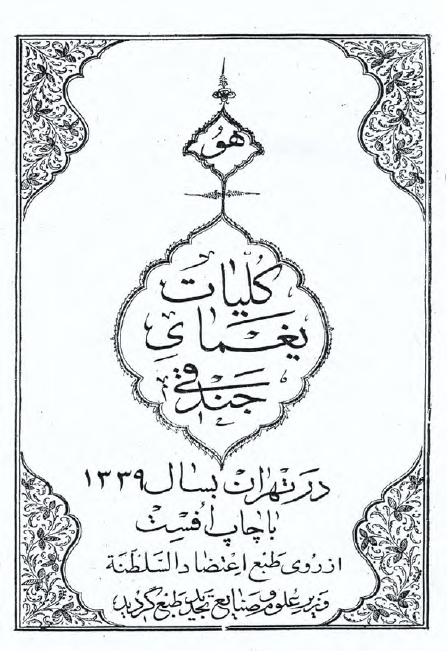 هُوَ
کلّیات
یغمای
جندقی
در تهران بسال ۱۳۳۹
با چاپ افست
از روی طبع اعتضاد السلطنة
وزیر علوم و صنایع تجدید طبع گردید